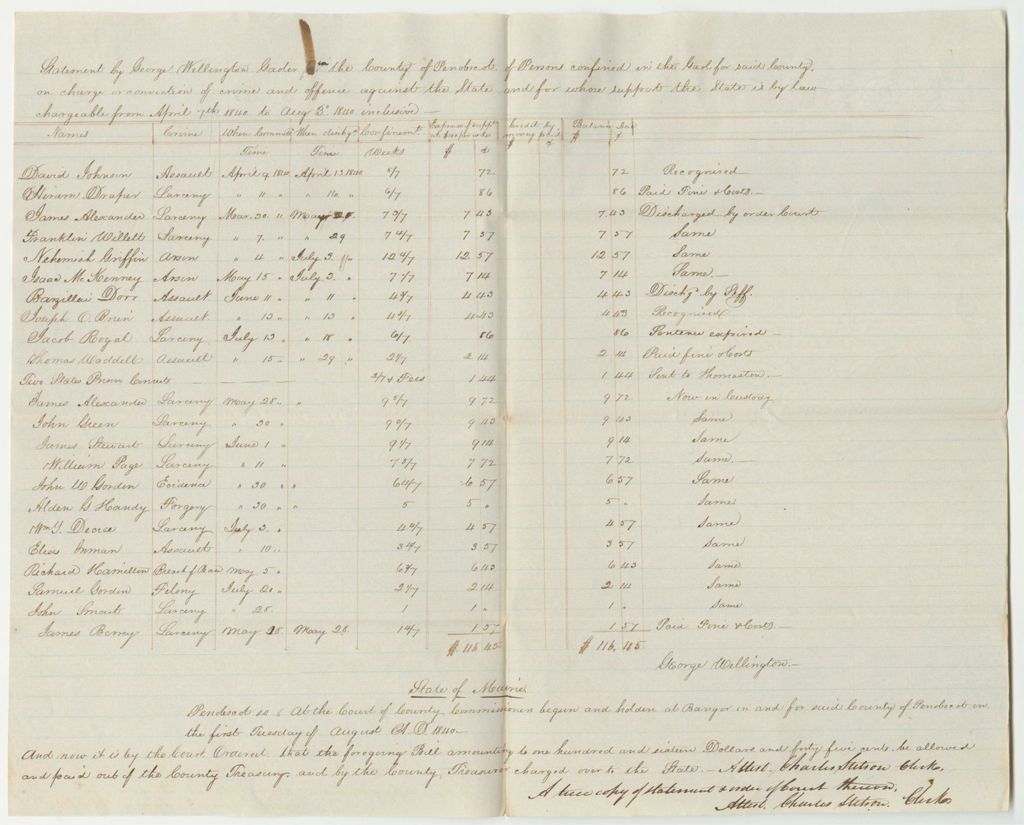 Statement by George Wellington Gaoler for the County of Penobscot of Persons confined in the Gaol for said County,
on charge or conviction of crime and offence against the State and for whose support the State is by law
chargeable from April 7th 1840 to Aug 3d 1840 inclusive —
Names Crime When Commitd When dischgd Confinemt Expense of support Credit by money paid Balance Due
Time Time Weeks $ c $ c $ c
David Johnson Assault April 9. 1840 April 13. 1840 5/7 72 72 Recognised —
Hiram Draper Larceny " 11 " " 16 " 6/7 86 86 Paid Fine & Costs —
James Alexander Larceny Mar. 30 " May 28 " 7 3/7 7 43 7.43 Discharged by order Court
Franklin Willett Larceny " 7. " " 29 7 4/7 7 57 7 57 Same
Nehemiah Griffin Arson " 4 " July 3. " 12 4/7 12 57 12 57 Same
Isaac McKenney Arson May 15 " July 3. " 7 1/7 7 14 7 14 Same. —
Barzillai Dorr Assault June 11 " " 11 " 4 3/7 4 43 4 43 Dischgd by Pff.
Joseph O. Brien Assault " 13 " " 13 " 4 3/7 4 43 4 43 Recognised
Jacob Rogal Larceny July 13 " " 18 " 6/7 86 86 Sentence expired —
Thomas Waddell Assault " 15 " " 29 " 2 1/7 2 14 2 14 Paid fine & Costs
Two States Prison Convicts 3/7 & Fees 1 44 1 44 Sent to Thomaston —
James Alexander Larceny May 28 " 9 5/7 9 72 9 72 Now in Custody
John Green Larceny " 30 " 9 3/7 9 43 9 43 Same
James Stewart Larceny June 1 " 9 1/7 9 14 9 14 Same
William Page Larceny " 11 " 7 5/7 7 72 7 72 Same. —
John W Gordon Evidence " 30 " 6 4/7 6 57 6 57 Same
Alden B Handy Forgery " 30 " 5 5 " 5 " Same
Wm Y. Larceny July 3. " 4 4/7 4 57 4 57 Same
Elias Inman Assault " 10 " 3 4/7 3 57 3 57 Same
Richard Hamilton Breach of Peace May 5 " 6 3/7 6 43 6 43 Same
Samuel Gordon Felony July 20 " 2 1/7 2 14 2 14 Same
John Smart Larceny " 28. 1 1 " 1 " Same
James Larceny May 18 May 28. 1 4/7 1 57 1 57 Paid Fine & Costs —
$ 116.45 $ 116.45
George Wellington. —
State of Maine
Penobscot ss At the Court of County Commissioners begun and holden at Bangor in and for said County of Penobscot on
the first Tuesday of August A.D. 1840 —
And now it is by the Court Ordered that the foregoing Bill amounting to one hundred and sixteen Dollars and forty five cents. be allowed
and paid out of the County Treasury. and by the County Treasurer charged over to the State. — Attest. Charles Stetson Clerk.
A true copy of statement & order of Court thereon.
Attest. Charles Stetson Clerk